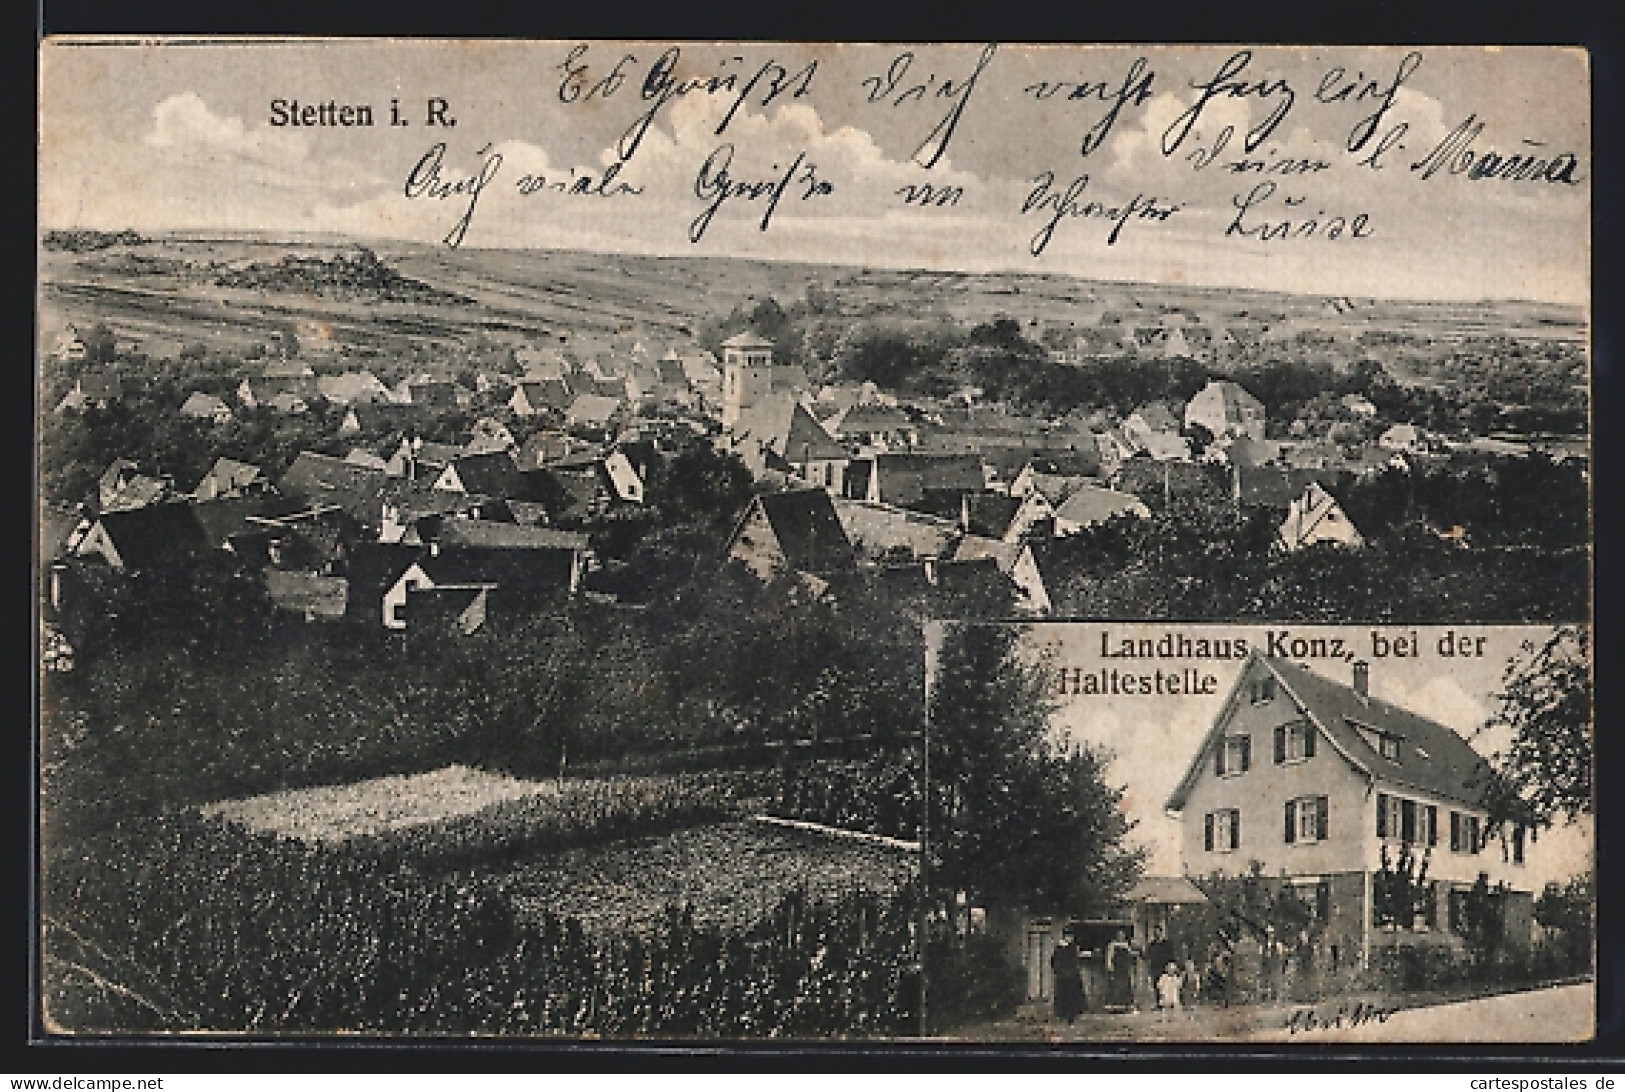 Stetten i. R.
Es Grüßt Dich recht herzlich
Deine l. Mama
Auch viele Grüße an Schwester Luise
Landhaus Konz, bei der
Haltestelle
www.cartespostales.de